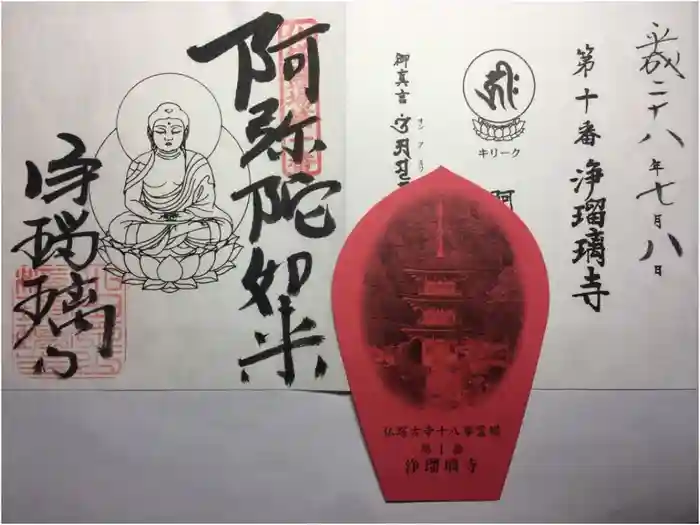 平成二十八年七月八日
第十番 浄瑠璃寺
キリーク
御真言
オン ア
阿弥陀如来
浄瑠璃寺
仏塔古寺十八尊霊場
第十番
浄瑠璃寺